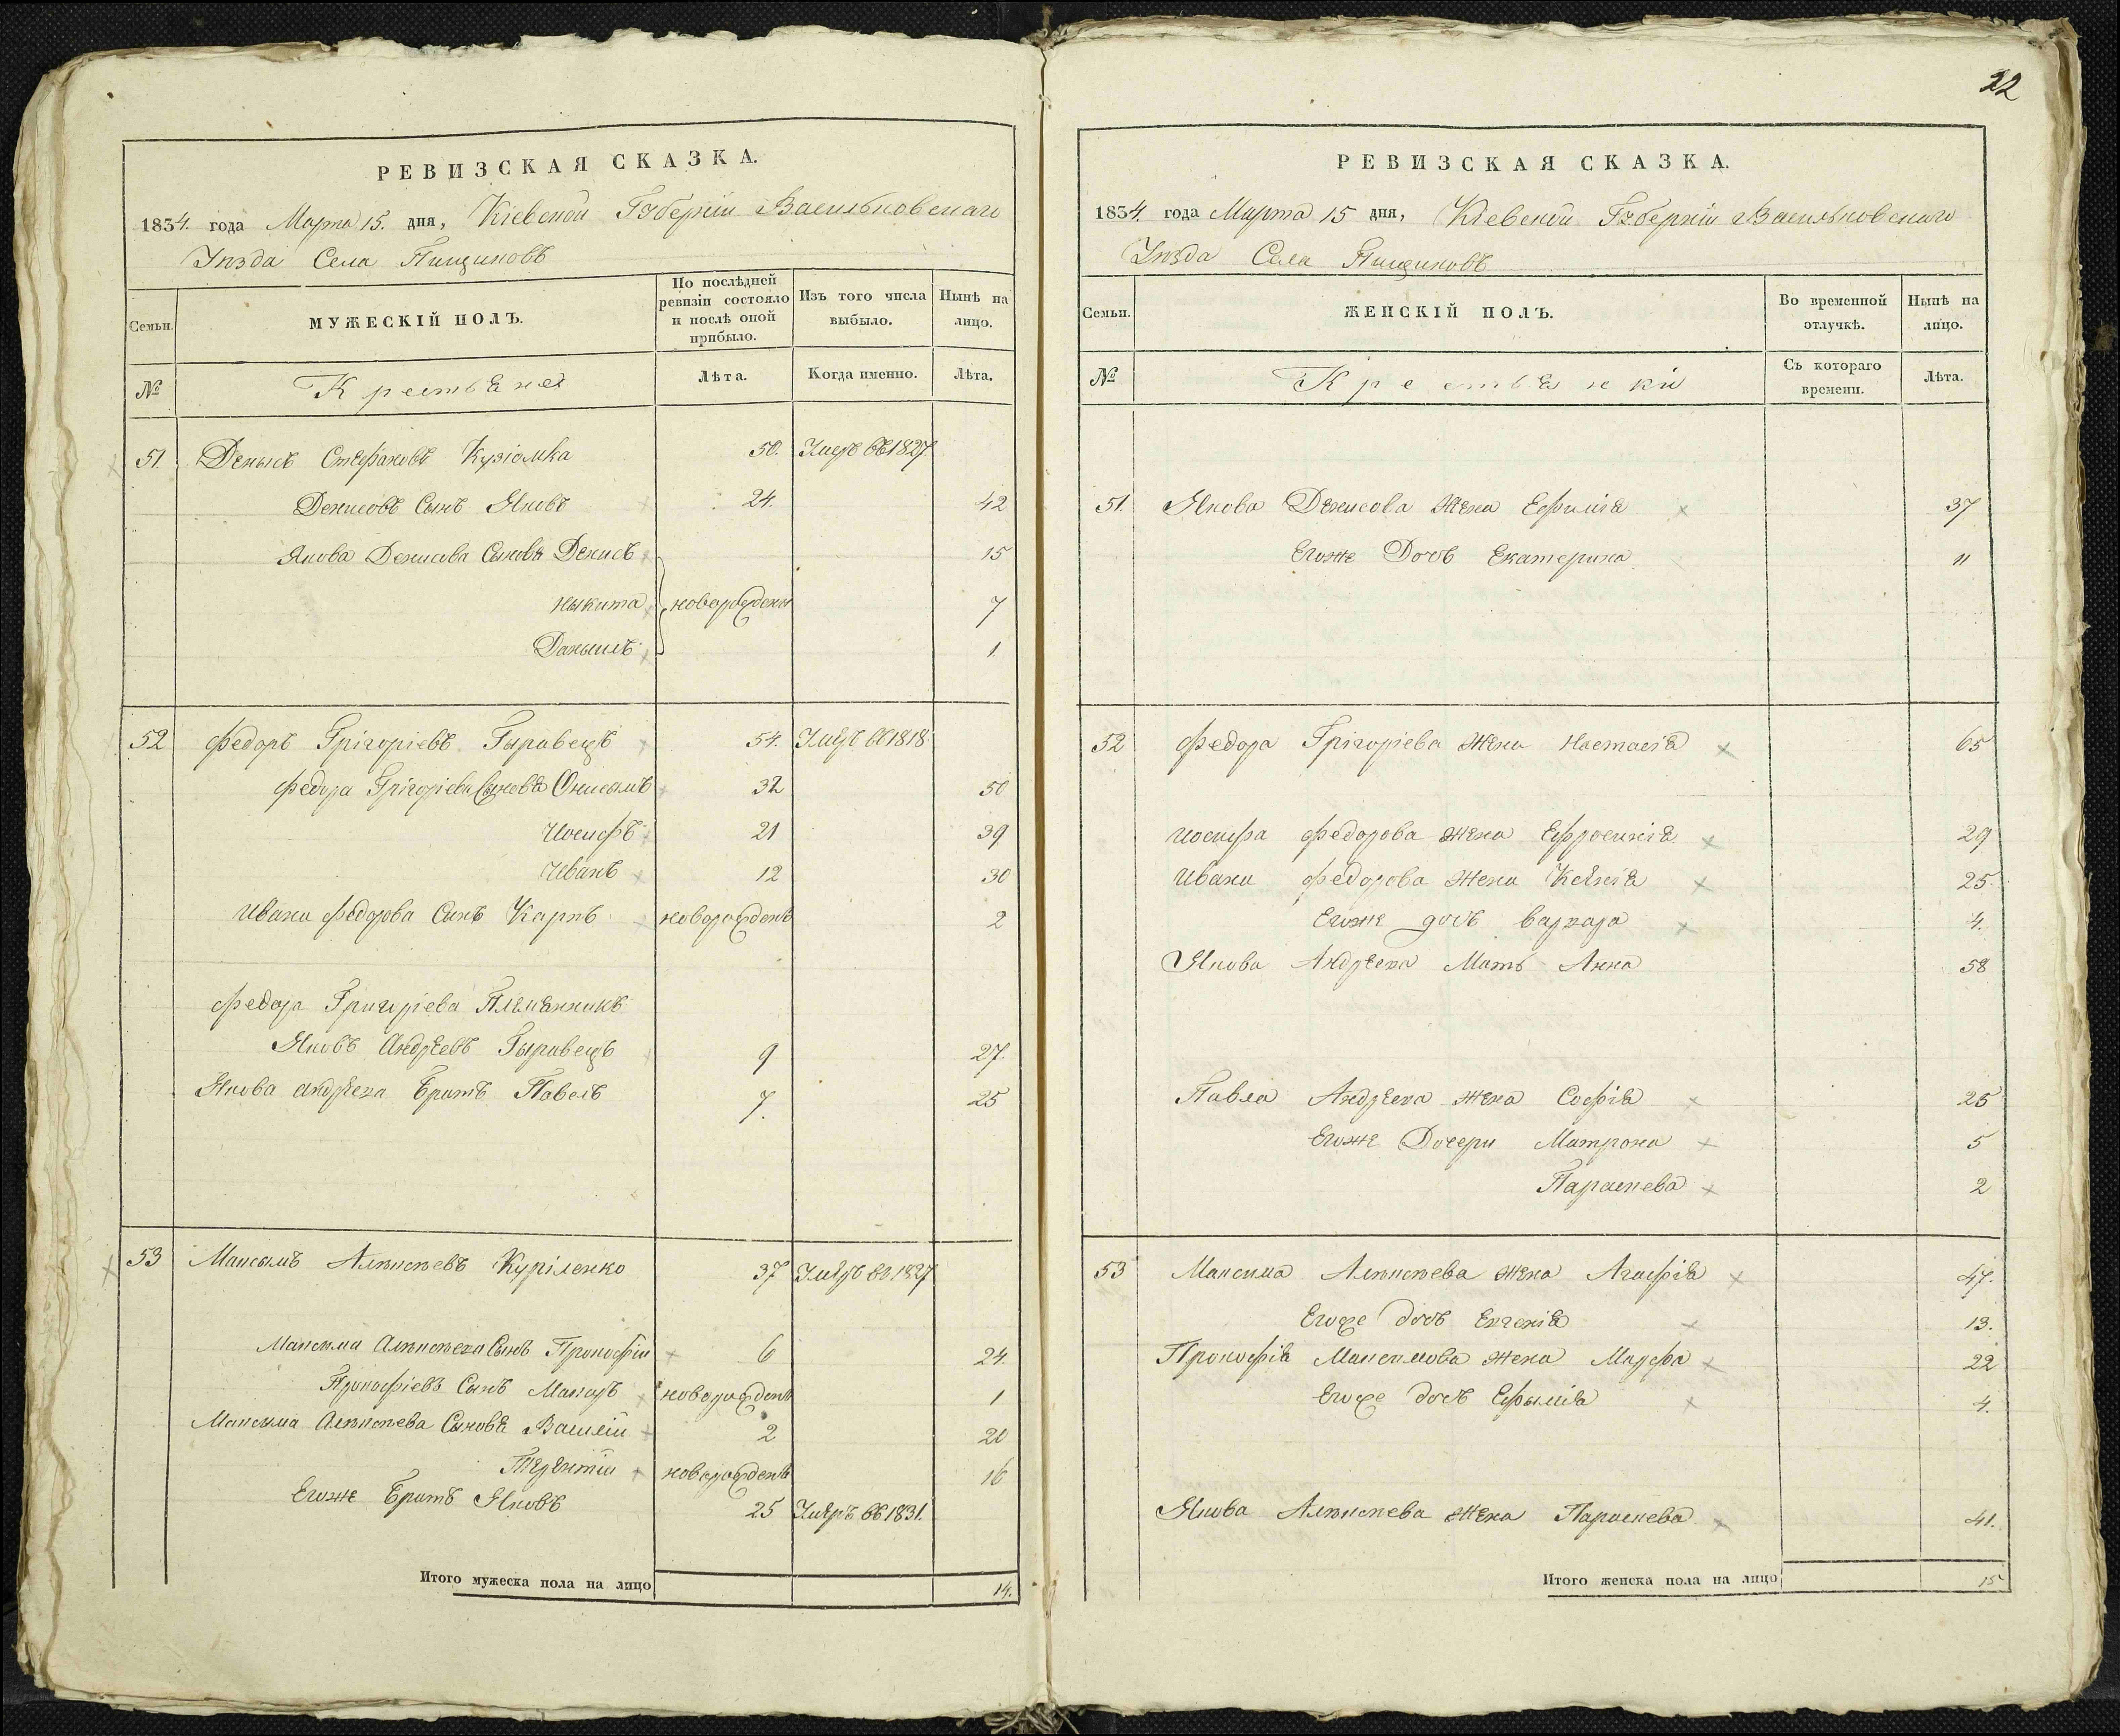 РЕВИЗСКАЯ СКАЗКА.
1834. года Марта 15. дня, Кіевской Губерніи Васильковскаго
Уезда Села Пищиковъ
Семьи.
МУЖЕСКІЙ ПОЛЪ.
По послѣдней ревизіи состояло и послѣ оной прибыло.
Изъ того числа выбыло.
Нынѣ на лицо.
№
Крестьяне
Лѣта.
Когда именно.
Лѣта.
51. Денысъ Стефановъ Кузіомка 50. Умеръ въ 1827
Денисовъ Сынъ Яковъ 24. 42
Якова Денисова Сыновя Денисъ 15
Ныкита новорожденн 7
Даныилъ 1
52 Федоръ Грігоріевъ Гыравецъ 54. Умеръ въ 1818.
Федора Грігоріева Сыновя Онисымъ 32 50
Иосифъ 21 39
Иванъ 12 30
Ивана Федорова Сынъ Карпъ новорожденъ 2
Федора Григоріева Племянникъ
Яковъ Андреевъ Гыравецъ 9 27.
Якова Андреева Братъ Павелъ 7. 25
53 Максымъ Алексѣевъ Куріленко 37 Умеръ въ 1827
Максима Алексѣева Сынъ Прокофіи 6 24.
Прокофіевъ Сынъ Макаръ новорожденъ 1
Максыма Алексѣева Сыновя Василіи 2 20
Терентіи новорожденъ 16
Егоже Братъ Яковъ 25 Умеръ въ 1831.
Итого мужеска пола на лицо 14.
22
РЕВИЗСКАЯ СКАЗКА.
1834. года Марта 15 дня, Кіевской Губерніи Васильковскаго
Уезда Села Пищиковъ
Семьи.
ЖЕНСКІЙ ПОЛЪ.
Во временной отлучкѣ.
Нынѣ на лицо.
№
Крестьянки
Съ котораго времени.
Лѣта.
51. Якова Денисова Жена Ефимія 37
Егоже Дочь Екатерина 11
52 Федора Грігоріева Жена Настасія 65
Иосифа Федорова жена Ефросинія 29
Ивана Федорова жена Ксенія 25.
Егоже дочь Варвара 4.
Якова Андреева Мать Анна 58
Павла Андреева жена Софія 25
Егоже Дочери Матрона 5
Параскева 2
53 Максима Алексѣева жена Агафія 47.
Егоже дочь Евгенія 13.
Прокофія Максимова жена Марфа 22
Егоже дочь Ефымія 4.
Якова Алексѣева жена Параскева 41.
Итого женска пола на лицо 15